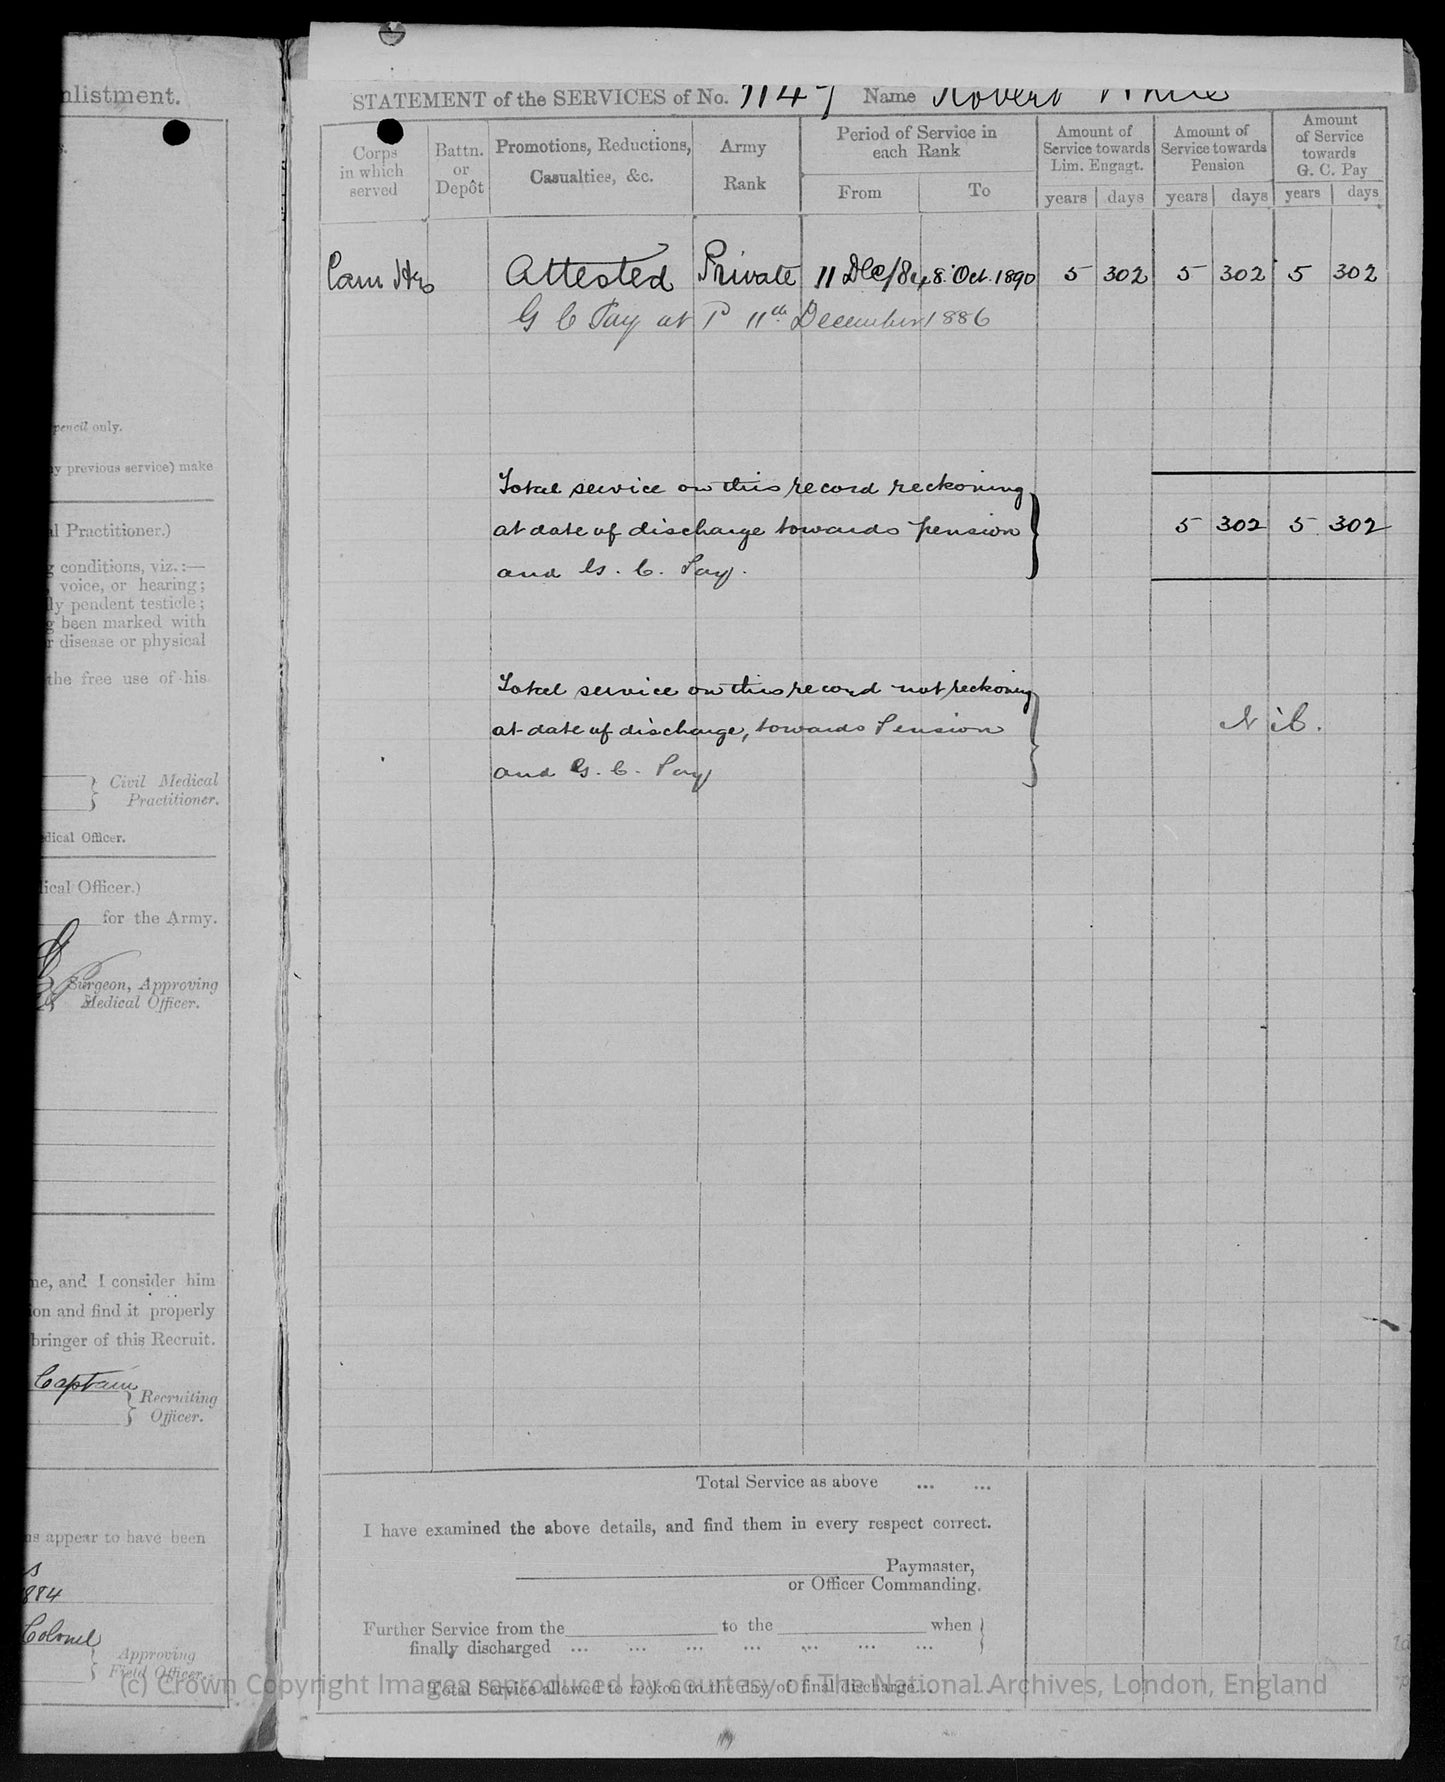 nlistment.
s.
pencil only.
y previous service) make
al Practitioner.)
g conditions, viz.:—
, voice, or hearing;
ly pendent testicle;
g been marked with
r disease or physical
the free use of his
Civil Medical
Practitioner.
dical Officer.
lical Officer.)
for the Army.
Surgeon, Approving
Medical Officer.
me, and I consider him
ion and find it properly
bringer of this Recruit.
Captain
Recruiting
Officer.
ns appear to have been
s
1884
Colonel
Approving
Field Officer.
STATEMENT of the SERVICES of No. 1147 Name Robert White
Corps in which served
Battn. or Depôt
Promotions, Reductions, Casualties, &c.
Army Rank
Period of Service in each Rank
From To
Amount of Service towards Lim. Engagt.
years days
Amount of Service towards Pension
years days
Amount of Service towards G. C. Pay
years days
Cam Hrs Attested Private 11 Dec/84 8. Oct. 1890 5 302 5 302 5 302
G C Pay at 1d 11th December 1886
Total service on this record reckoning
at date of discharge towards pension 5 302 5 302
and G. C. Pay.
Total service on this record not reckoning
at date of discharge, towards Pension Nil.
and G. C. Pay
Total Service as above ... ...
I have examined the above details, and find them in every respect correct.
Paymaster,
or Officer Commanding.
Further Service from the to the when
finally discharged ... ... ... ... ... ... ...
Total Service allowed to reckon to the day of final discharge... ...
(c) Crown Copyright Images reproduced by courtesy of The National Archives, London, England